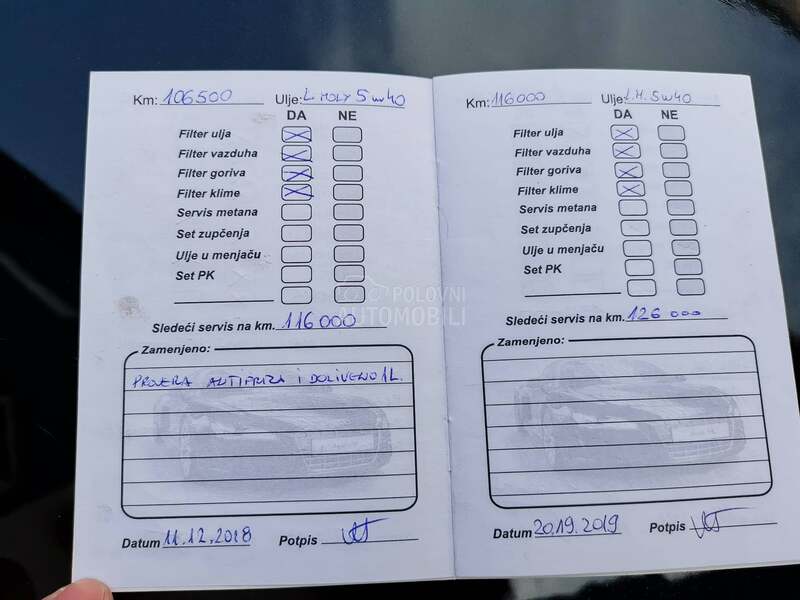 Km: 106500 Ulje: L. MOLY 5w40
DA NE
Filter ulja
Filter vazduha
Filter goriva
Filter klime
Servis metana
Set zupčenja
Ulje u menjaču
Set PK
Sledeći servis na km. 116000
Zamenjeno:
PROVERA ANTIFRIZA I DOLIVENO 1L.
Datum 11.12.2018 Potpis
Km: 116000 Ulje: L.M. 5w40
DA NE
Filter ulja
Filter vazduha
Filter goriva
Filter klime
Servis metana
Set zupčenja
Ulje u menjaču
Set PK
Sledeći servis na km. 126 000
Zamenjeno:
Datum 20.19.2019 Potpis
POLOVNI
AUTOMOBILI